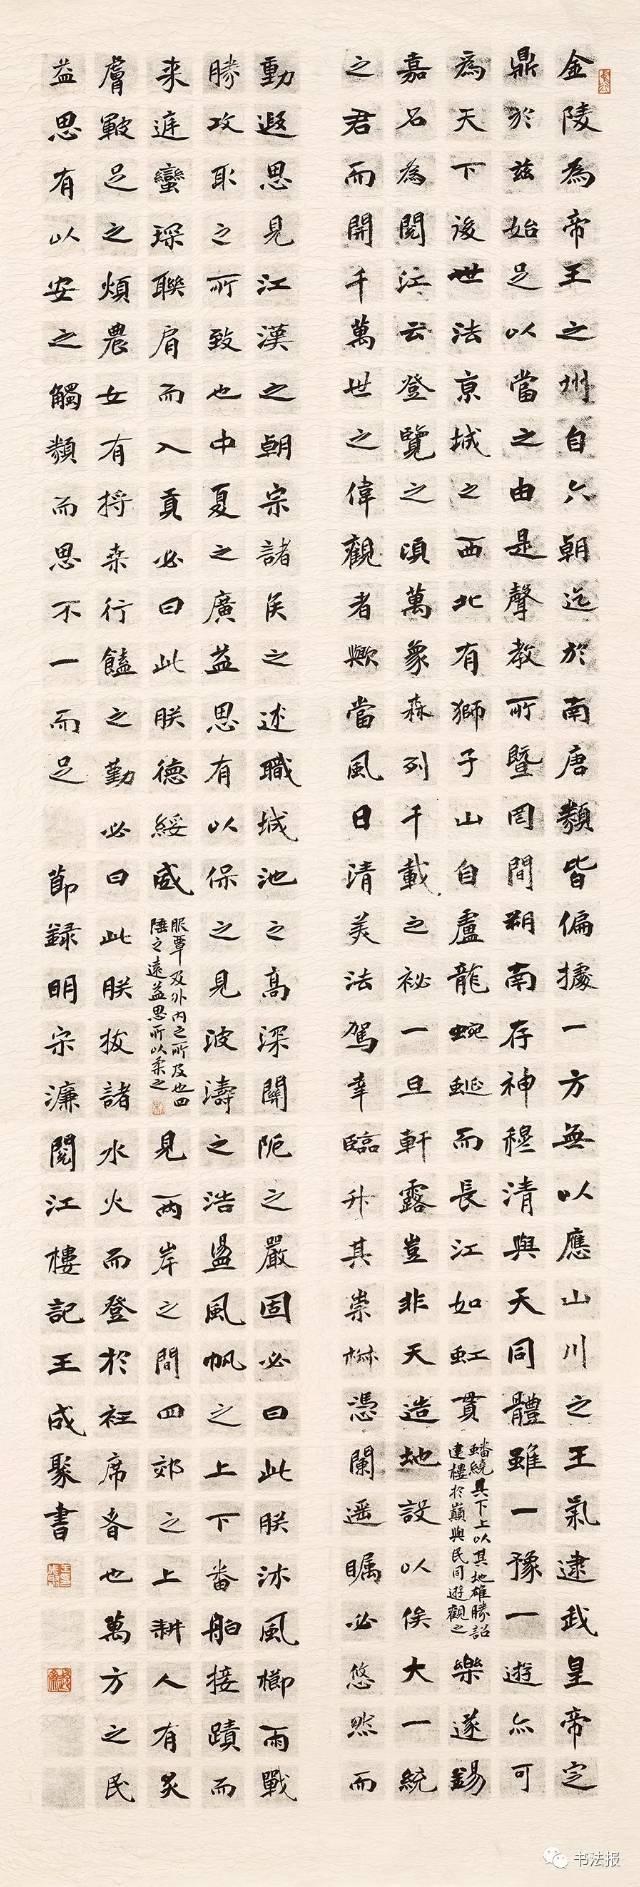 金陵為帝王之州自六朝迄於南唐類皆偏據一方無以應山川之王氣逮我皇帝定
鼎於茲始足以當之由是聲教所暨罔間朔南存神穆清與天同體雖一豫一遊亦可
為天下後世法京城之西北有獅子山自盧龍蜿蜒而長江如虹貫
蟠繞其下上以其地雄勝詔
建樓於巔與民同遊觀之
樂遂錫
嘉名為閱江云登覽之頃萬象森列千載之祕一旦軒露豈非天造地設以俟大一統
之君而開千萬世之偉觀者歟當風日清美法駕幸臨升其崇椒憑闌遙矚必悠然而
動遐思見江漢之朝宗諸侯之述職城池之高深關阨之嚴固必曰此朕沐風櫛雨戰
勝攻取之所致也中夏之廣益思有以保之見波濤之浩盪風帆之上下番舶接蹟而
來庭蠻琛聯肩而入貢必曰此朕德綏威
服覃及外內之所及也四
陲之遠益思所以柔之
見兩岸之間四郊之上耕人有炙
膚皸足之煩農女有捋桑行饁之勤必曰此朕拔諸水火而登於衽席者也萬方之民
益思有以安之觸類而思不一而足 節録明宋濂閱江樓記王成聚書
书法报